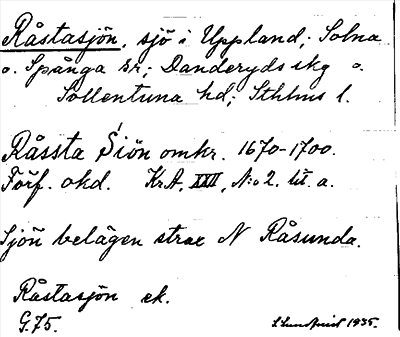 Råstasjön, sjö i Uppland; Solna
o. Spånga sr; Danderyds skg o.
Sollentuna hd; Sthlms l.
Råssta Siön omkr. 1670-1700.
Förf. okd. KrA, XXII, N:o 2. lit. a.
Sjön belägen strax N Råsunda.
Råstasjön ek.
G.75.
S Lundqvist 1935.